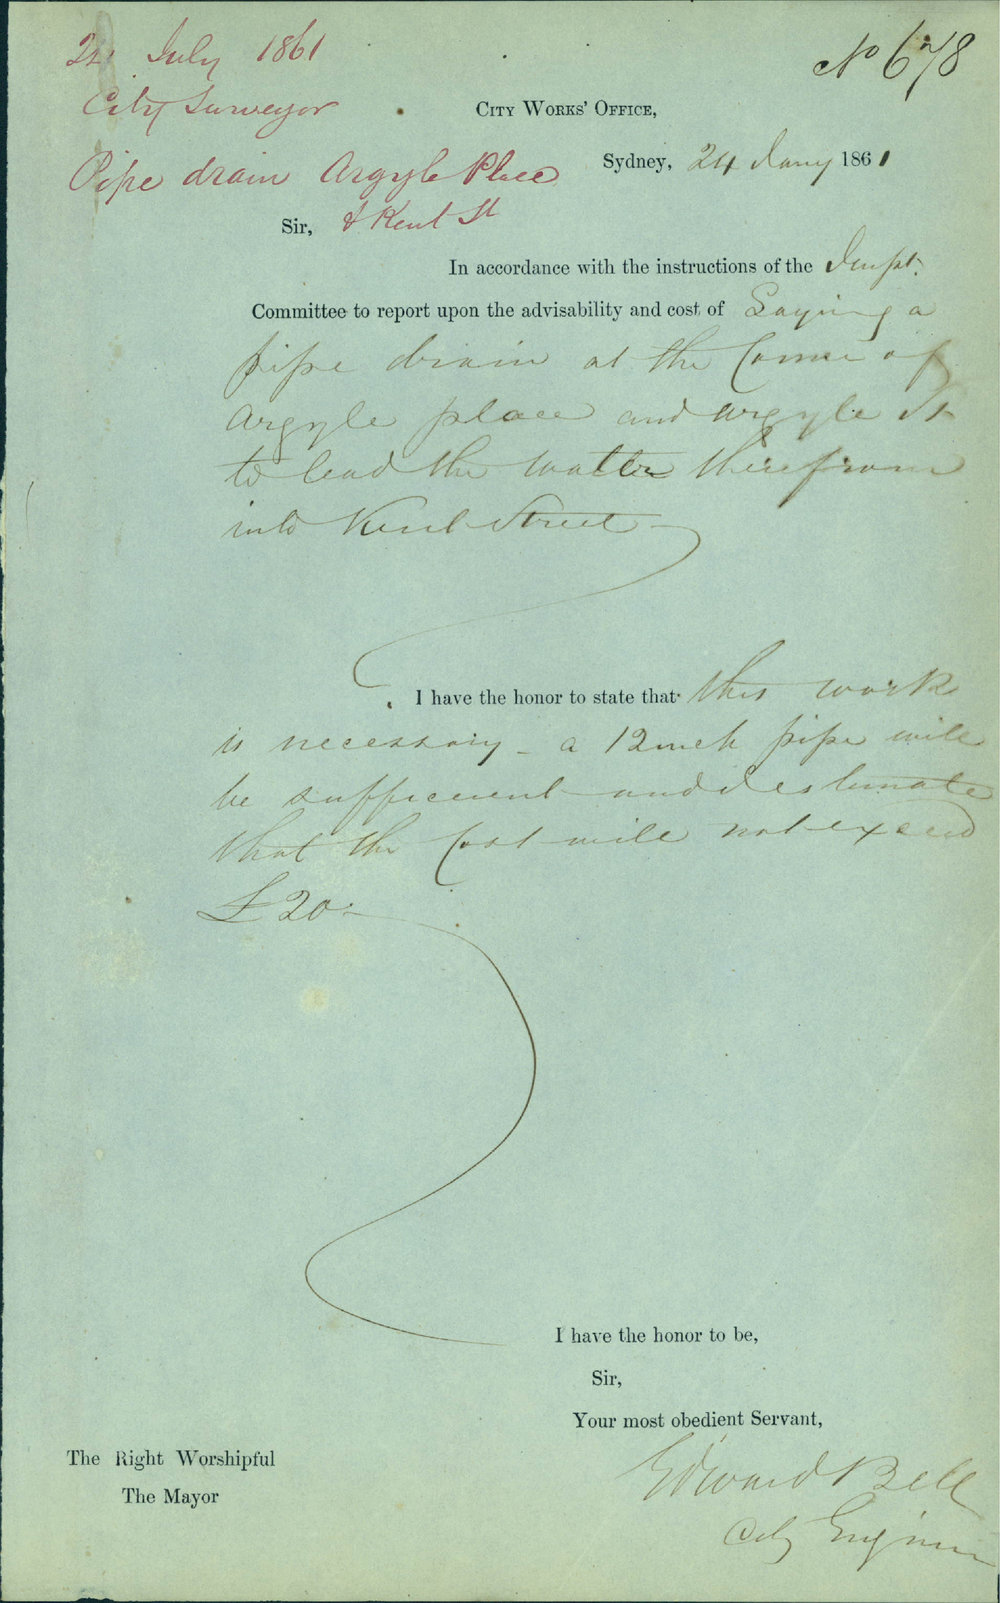 24 July 1861
City Surveyor
Pipe drain Argyle Place
& Kent St
No 678
CITY WORKS' OFFICE,
Sydney, 24 Jany 1861
Sir,
In accordance with the instructions of the
Committee to report upon the advisability and cost of Laying a
pipe drain at the Corner of
Argyle place and Argyle St
to lead the water therefrom
into Kent Street
I have the honor to state that this work
is necessary - a 12 inch pipe will
be sufficient and I estimate
that the Cost will not exceed
£20
I have the honor to be,
Sir,
Your most obedient Servant,
Edward Bell
City Engineer
The Right Worshipful
The Mayor